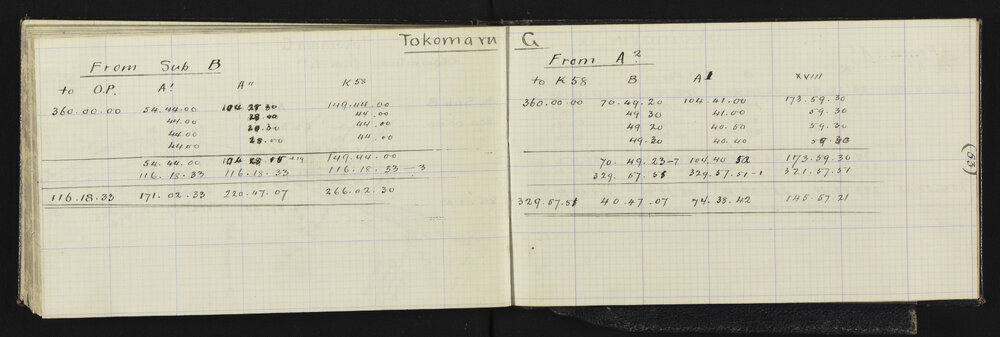 Tokomaru G
From Sub B
to O.P. A' A" K 58
360.00.00 54.44.00 104.28.30 149.44.00
44.00 28.00 44.00
44.00 28.30 44.00
44.00 28.00 44.00
54.44.00 104 28 15 +19 149.44.00
116.18.33 116.18.33 116.18.33—3
116.18.33 171.02.33 220.47.07 266.02.30
From A2
to K 58 B A1 XVIII
360.00.00 70.49.20 104.41.00 173.59.30
49 30 41.00 59.30
49 20 40.50 59.30
49.30 40.40 59 30
70.49.23-7 104.40 52 173.59.30
329.57.51 329.57.51-1 321.57.51
329.57.51 40.47.07 74.38.42 145.57.21
(63)